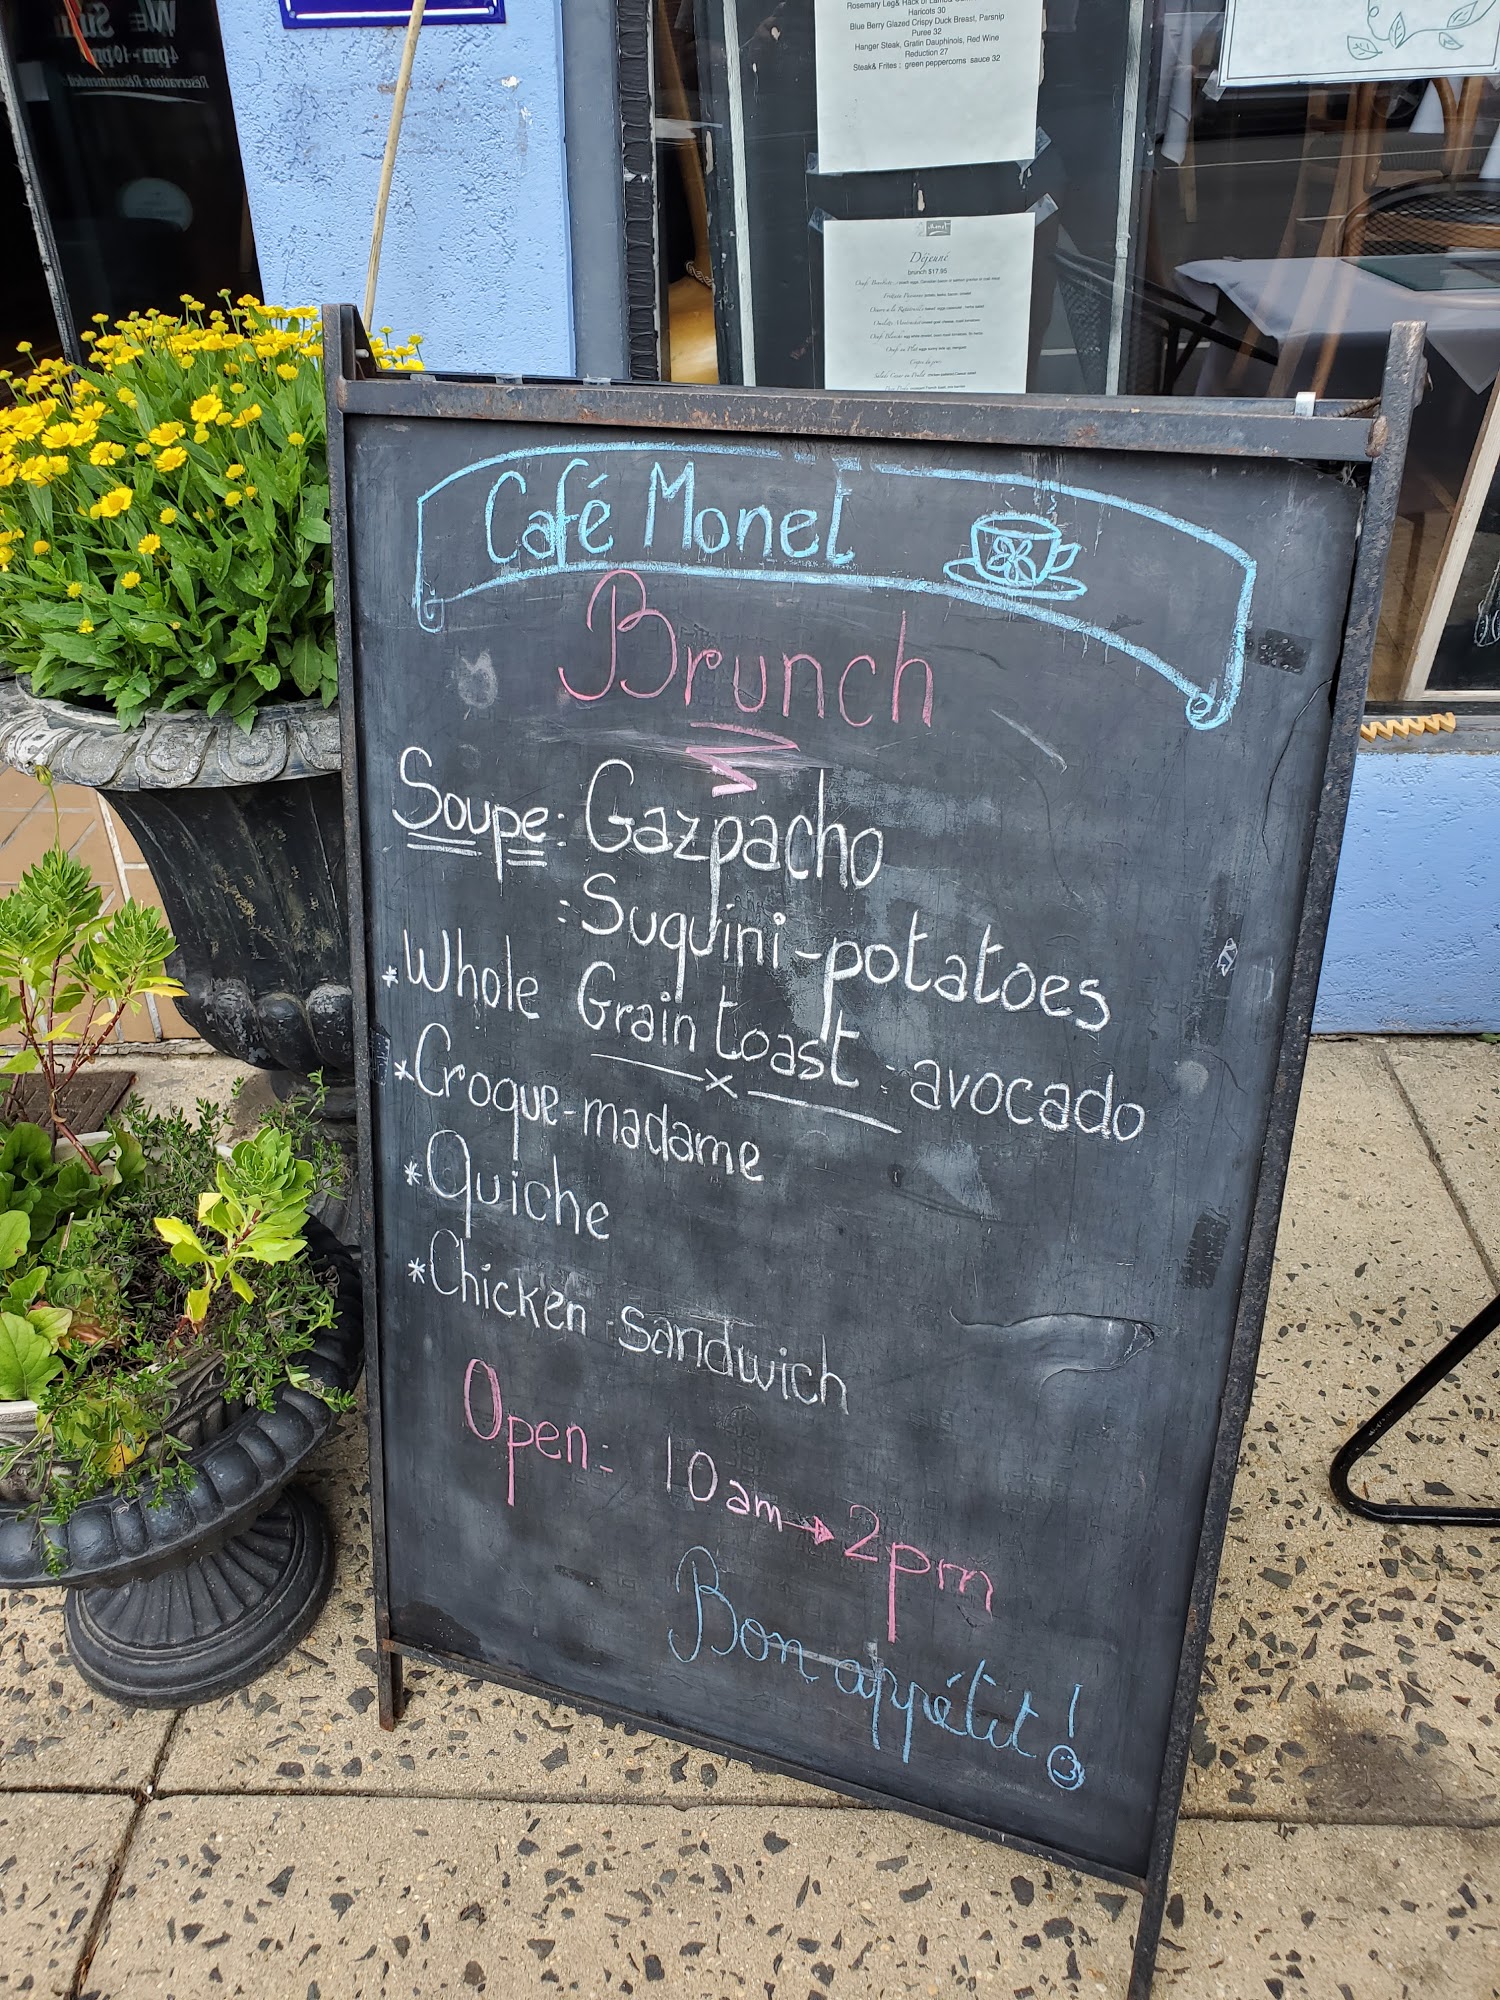 Rosemary Leg& Rack of Lamb
Haricots 30
Blue Berry Glazed Crispy Duck Breast, Parsnip
Puree 32
Hanger Steak, Gratin Dauphinois, Red Wine
Reduction 27
Steak& Frites : green peppercorns sauce 32
4pm-10pm
Reservations Recommended
Déjeuné
brunch $17.95
Café Monet
Brunch
Soupe: Gazpacho
: Suquini-potatoes
*Whole Grain toast - avocado
*Croque-madame
*Quiche
*Chicken sandwich
Open: 10am → 2pm
Bon appétit!